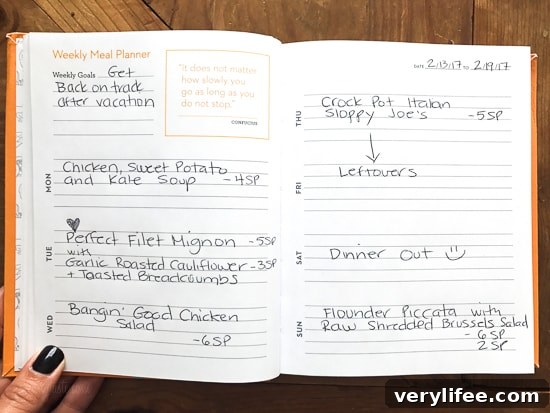 Weekly Meal Planner
Weekly Goals Get
Back on track
after vacation
"It does not matter
how slowly you
go as long as you
do not stop."
CONFUCIUS
MON
Chicken, Sweet Potato
and Kale Soup - 4SP
TUE
Perfect Filet Mignon - 5SP
with
Garlic Roasted Cauliflower - 3SP
+ Toasted Breadcrumbs
WED
Bangin' Good Chicken
Salad
- 6SP
DATE 2/13/17 TO 2/19/17
THU
Crock Pot Italian
Sloppy Joe's - 5SP
FRI
Leftovers
SAT
Dinner Out
SUN
Flounder Piccata with
Raw Shredded Brussels Salad
- 6SP
2SP
verylifee.com